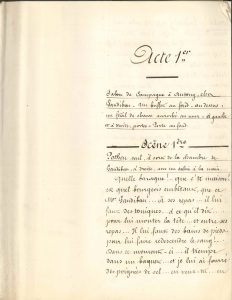 Acte 1er
Salon de Campagne à Auteuil, chez
Gaudiban. Un buffet au fond, au dessus
un fusil de chasse accroché au mur. à gauche
et à droite, portes. Porte au fond
Scène 1ère
Pothon seul, il sort de la chambre de
Gaudiban, à droite, avec un ballon à la main.
Quelle baraque! que c'te maison!
et quel bourgeois embêtant, que ce
Mr Gaudiban... à ses repas... il lui
faut des toniques... à ce qu'il dit...
pour lui monter la tête... et entre ses
repas... Il lui faut des bains de pieds
pour lui faire redescendre le sang!
Dans ce moment-ci... il trempe
dans un baquet... et je lui ai fourré
des poignées de sel... en veux-tu... en